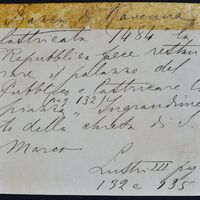 Barca di Ravenna
lastricata 1484 la
Repubblica fece restau
rare il palazzo del
Pubblico e lastricare la
pag 132
piazza " Ingrandimen
to della chiesa di S.
Marco
Lustri III pag
132 e 135